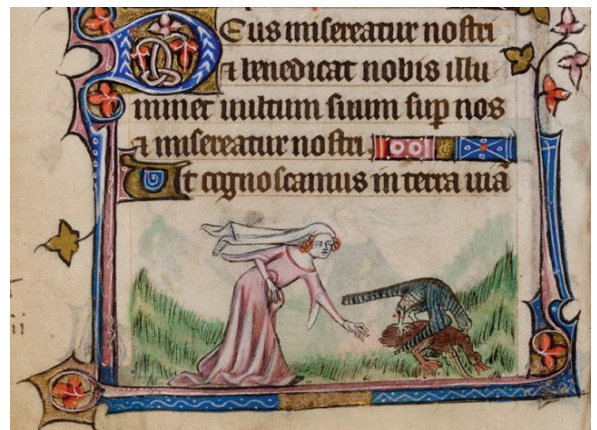 Deus misereatur nostri
⁊ benedicat nobis illu
minet uultum suum sup nos
⁊ misereatur nostri
Ut cognoscamus in terra uiā